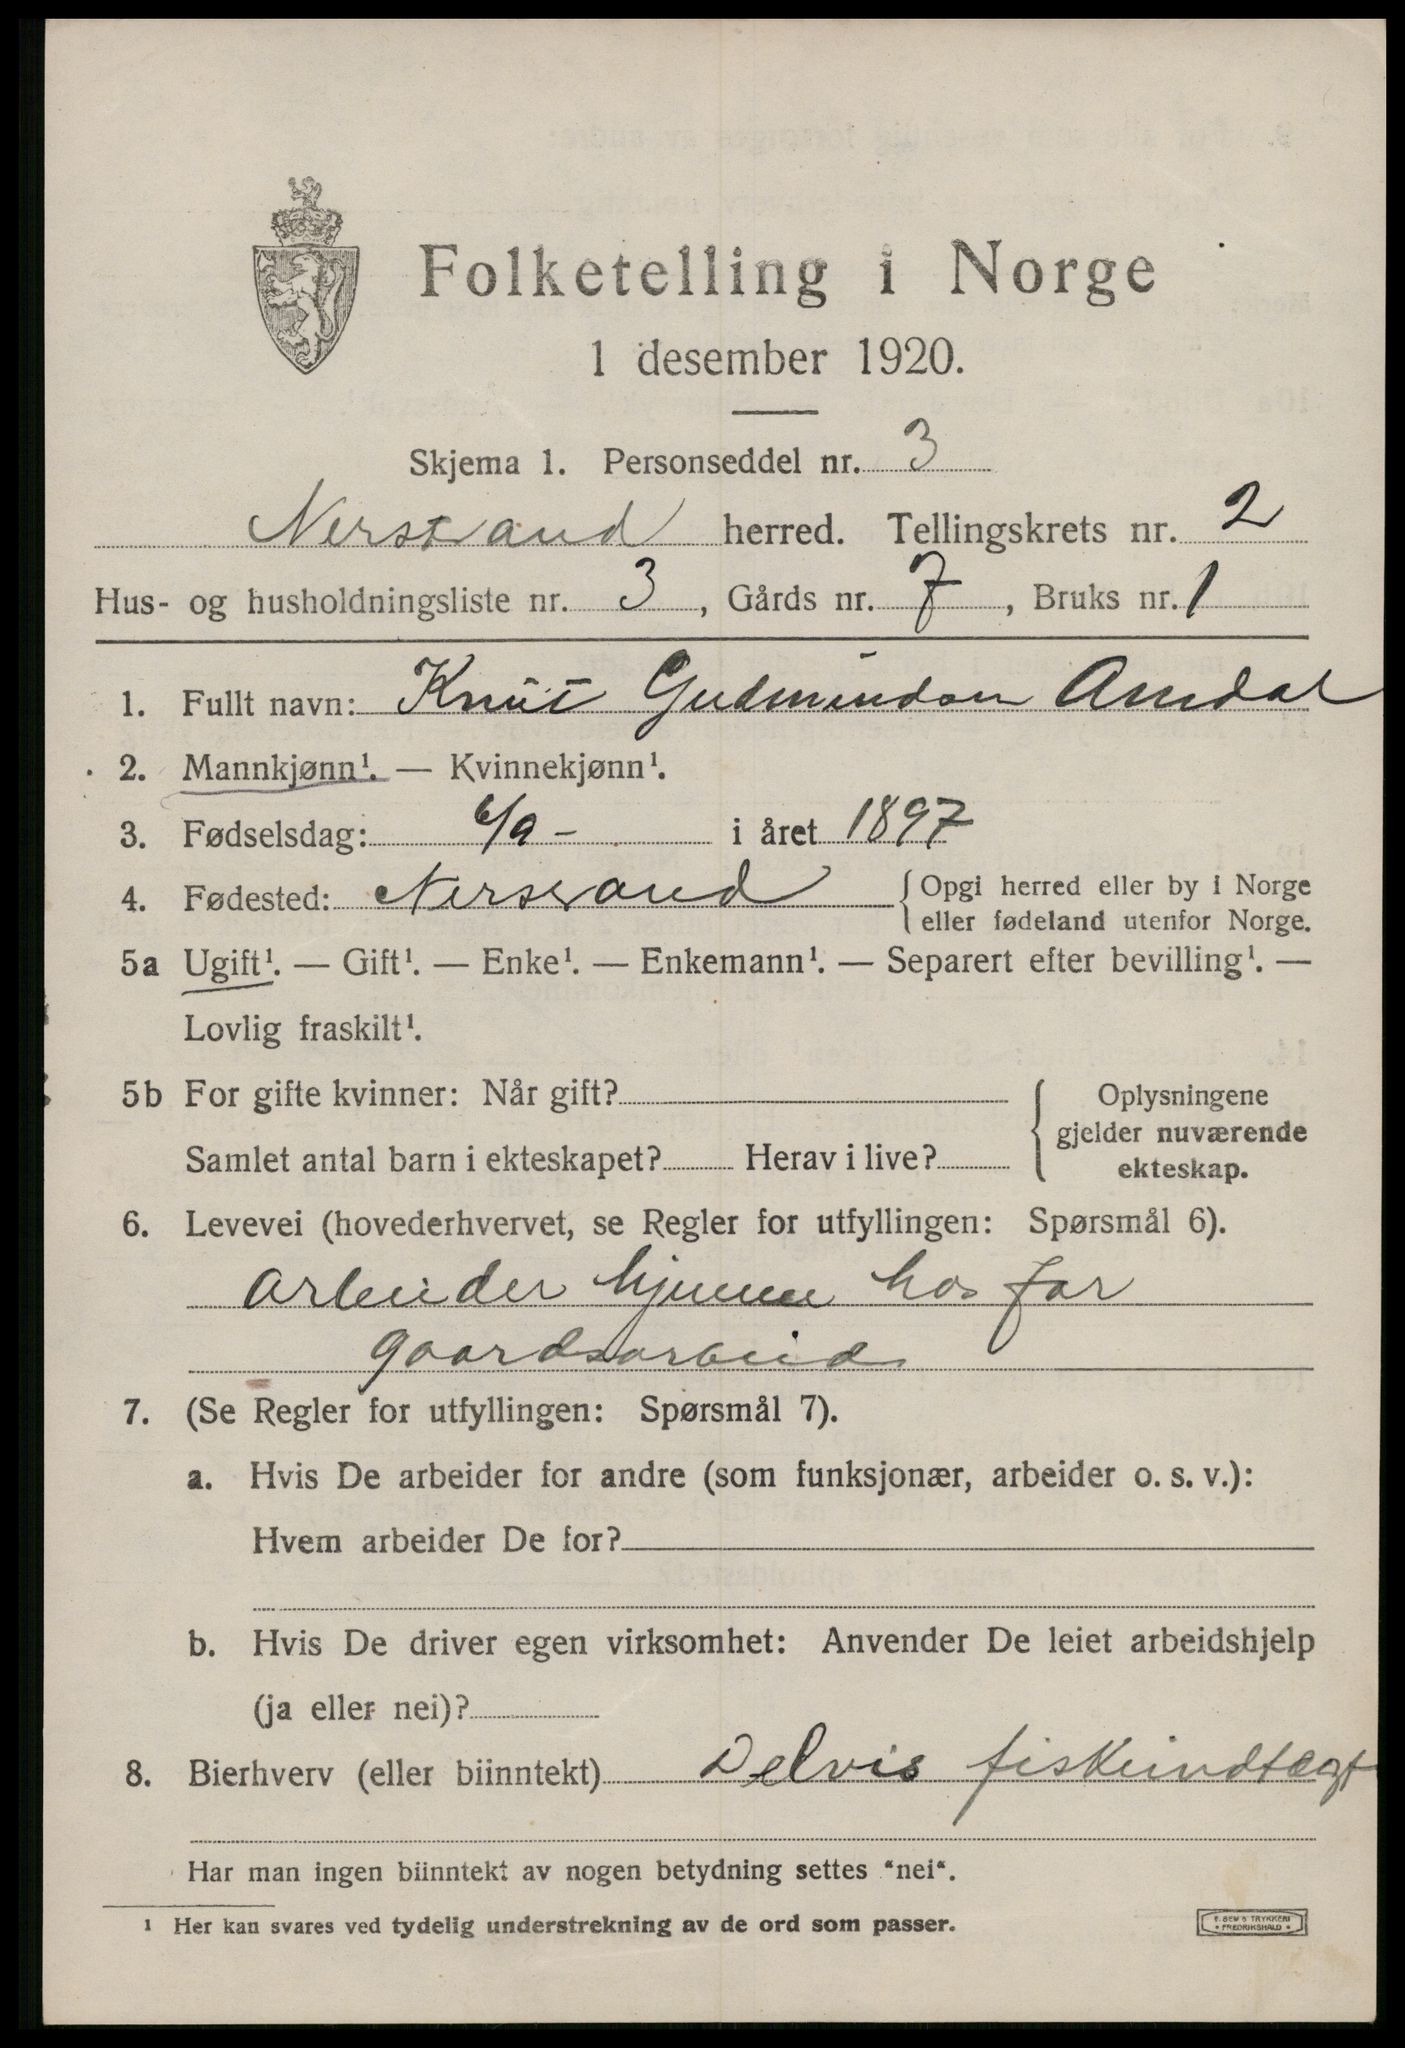 Folketelling i Norge
1 desember 1920.
Skjema 1. Personseddel nr. 3
Nerstrand herred. Tellingskrets nr. 2
Hus- og husholdningsliste nr. 3, Gårds nr. 7, Bruks nr. 1
1. Fullt navn: Knut Gudmundsen Amdal
2. Mannkjønn¹. — Kvinnekjønn¹.
3. Fødselsdag: 6/9 - i året 1897
4. Fødested: Nerstrand {Opgi herred eller by i Norge
eller fødeland utenfor Norge.
5a Ugift¹. — Gift¹. — Enke¹. — Enkemann¹. — Separert efter bevilling¹. —
Lovlig fraskilt¹.
5b For gifte kvinner: Når gift?
Samlet antal barn i ekteskapet? Herav i live?
Oplysningene
gjelder nuværende
ekteskap.
6. Levevei (hovederhvervet, se Regler for utfyllingen: Spørsmål 6).
arbeider hjemme hos far
gaardsarbeid
7. (Se Regler for utfyllingen: Spørsmål 7).
a. Hvis De arbeider for andre (som funksjonær, arbeider o. s. v.):
Hvem arbeider De for?
b. Hvis De driver egen virksomhet: Anvender De leiet arbeidshjelp
(ja eller nei)?
8. Bierhverv (eller biinntekt) Delvis fiskeindtægt
Har man ingen biinntekt av nogen betydning settes "nei".
¹ Her kan svares ved tydelig understrekning av de ord som passer.
E. SEM'S TRYKKERI
FREDRIKSHALD